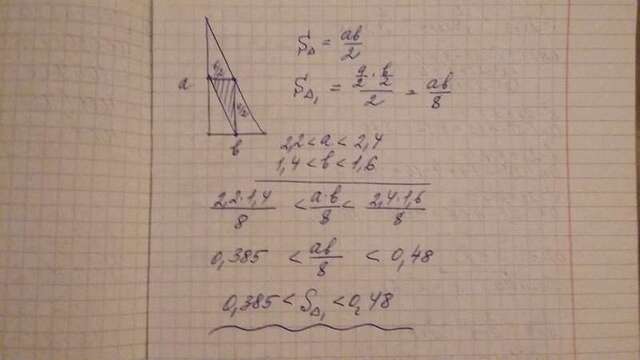 S△ = ab/2
a
b/2
a/2
b
S△₁ = (a/2 · b/2)/2 = ab/8
2,2 < a < 2,4
1,4 < b < 1,6
2,2·1,4/8 < a·b/8 < 2,4·1,6/8
0,385 < ab/8 < 0,48
0,385 < S△₁ < 0,48